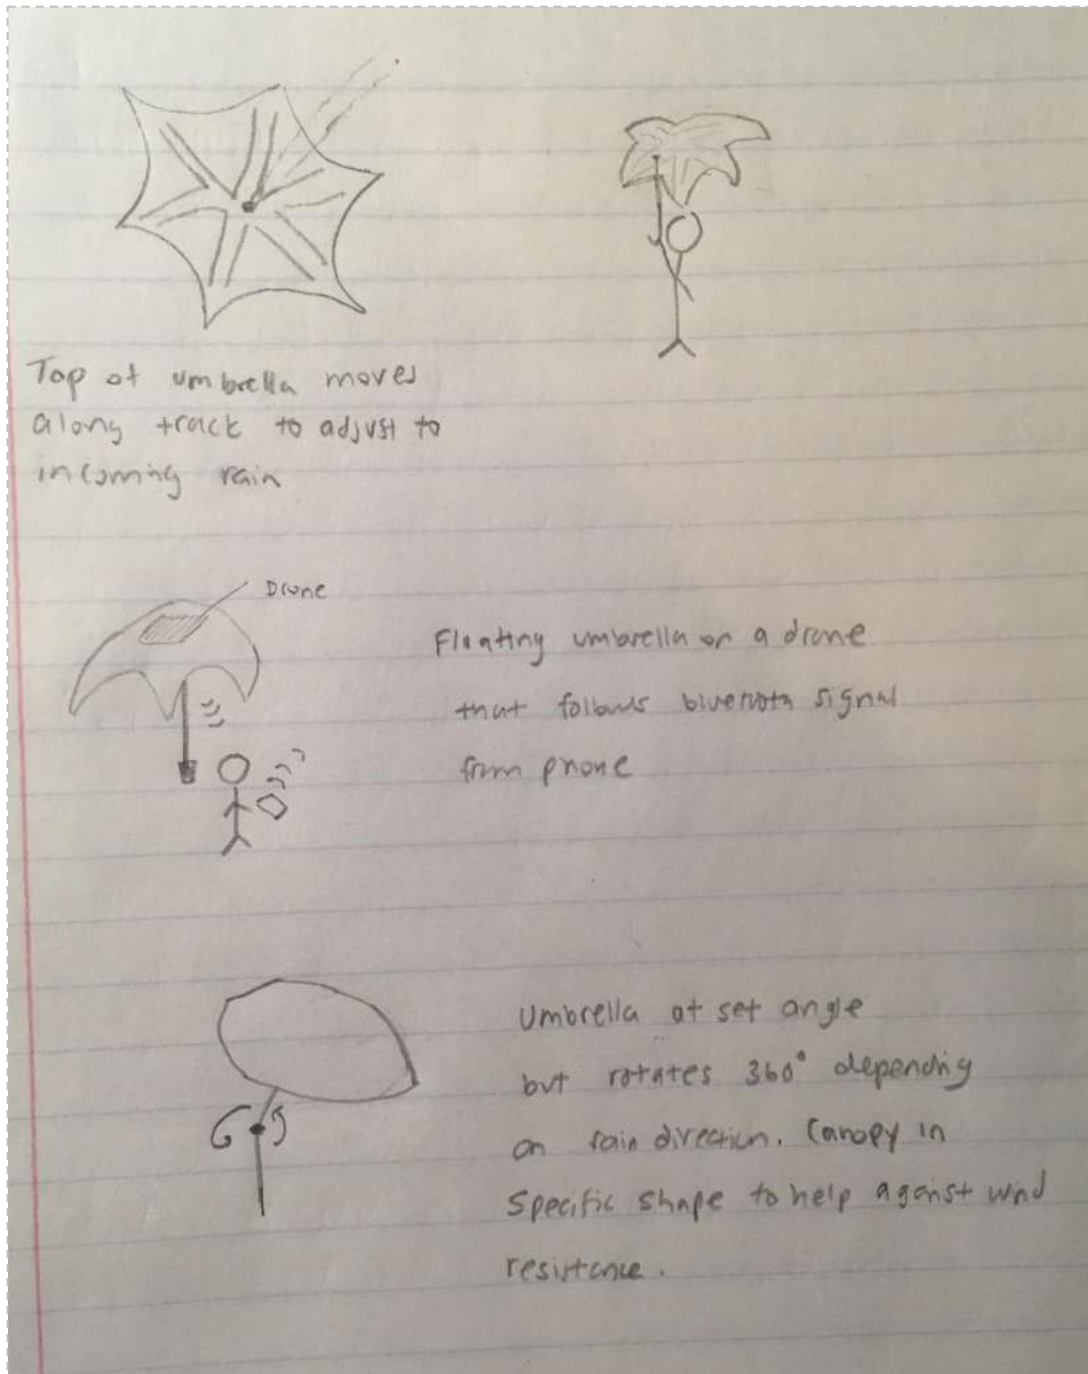 Top of umbrella moves
along track to adjust to
incoming rain
Drone
Floating umbrella on a drone
that follows bluetooth signal
from phone
Umbrella at set angle
but rotates 360° depending
on rain direction. Canopy in
specific shape to help against wind
resistance.